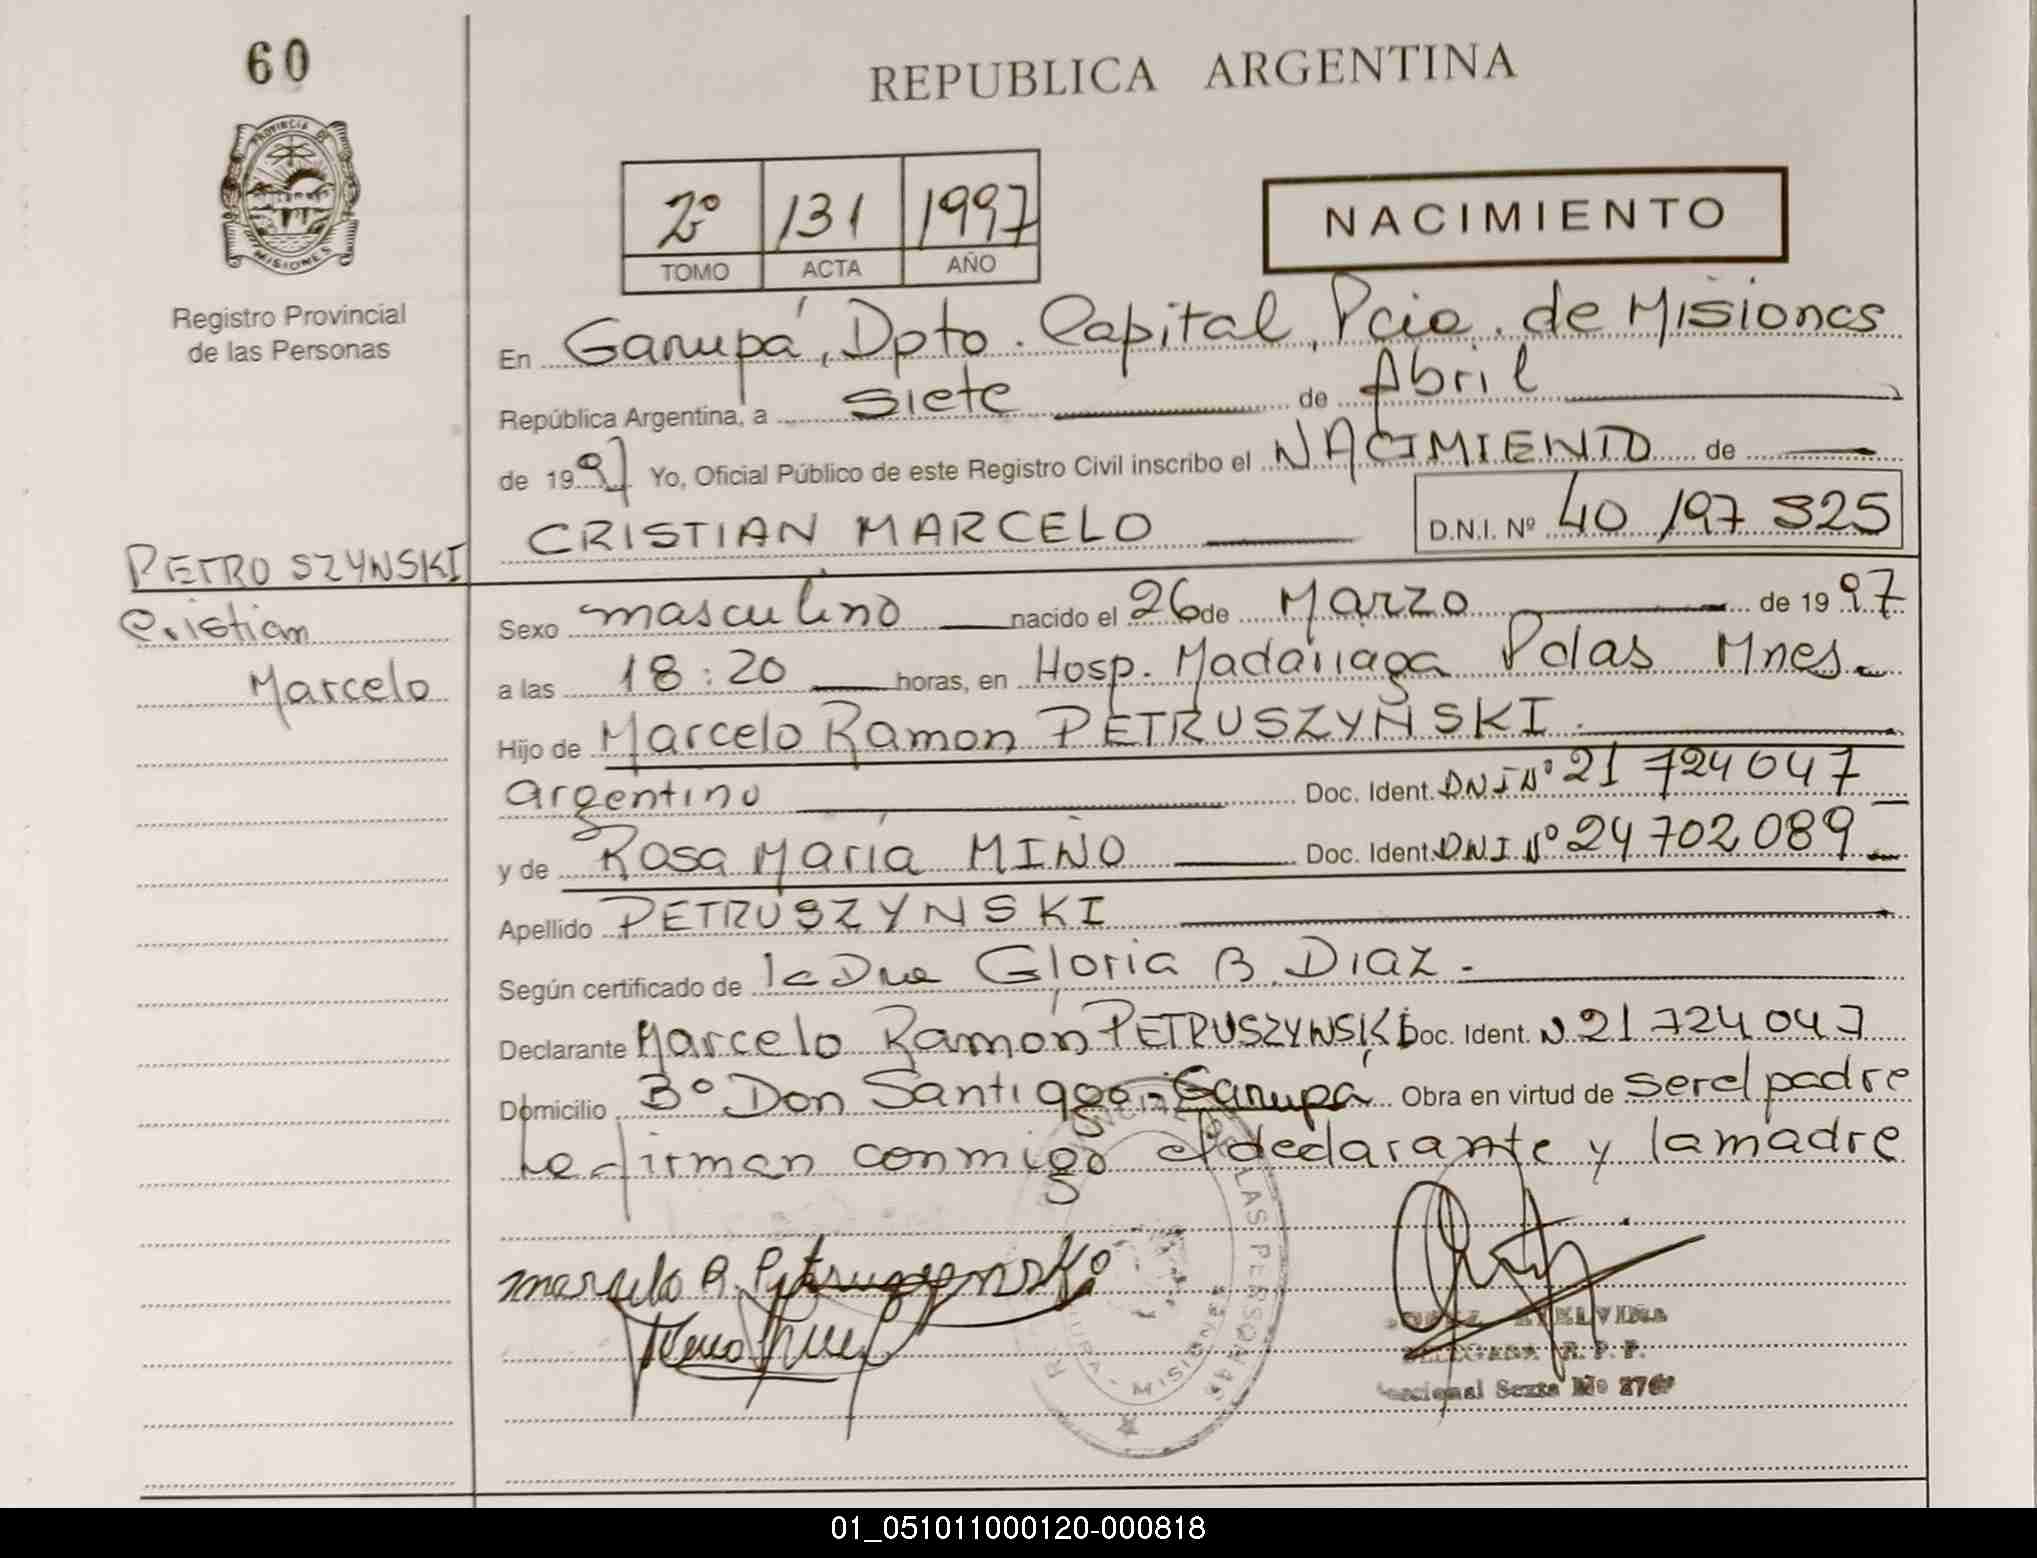 60
REPUBLICA ARGENTINA
PROVINCIA DE
MISIONES
Registro Provincial
de las Personas
2º 131 1997
TOMO ACTA AÑO
NACIMIENTO
En Garupá, Dpto. Capital, Pcia. de Misiones
República Argentina, a siete de Abril
de 1997 Yo, Oficial Público de este Registro Civil inscribo el NACIMIENTO de
CRISTIAN MARCELO D.N.I. Nº 40 197 325
PETROSZYNSKI
Cristian
Marcelo
Sexo masculino nacido el 26 de Marzo de 1997
a las 18:20 horas, en Hosp. Madariaga Pdas Mnes.
Hijo de Marcelo Ramon PETRUSZYNSKI.
argentino Doc. Ident. DNI Nº 21 724 047
y de Rosa María MIÑO Doc. Ident. DNI Nº 24 702 089
Apellido PETRUSZYNSKI
Según certificado de la Dra Gloria B. DIAZ.
Declarante Marcelo Ramón PETRUSZYNSKI Doc. Ident. N 21 724 047
Domicilio Bº Don Santiago - Garupá Obra en virtud de ser el padre
Le firman conmigo el declarante y la madre
marcelo R. Petruszynski
DE LAS PERSONAS
MISIONES
ETELVINA
DELEGADA R. P. P.
Seccional Sexta
01_051011000120-000818